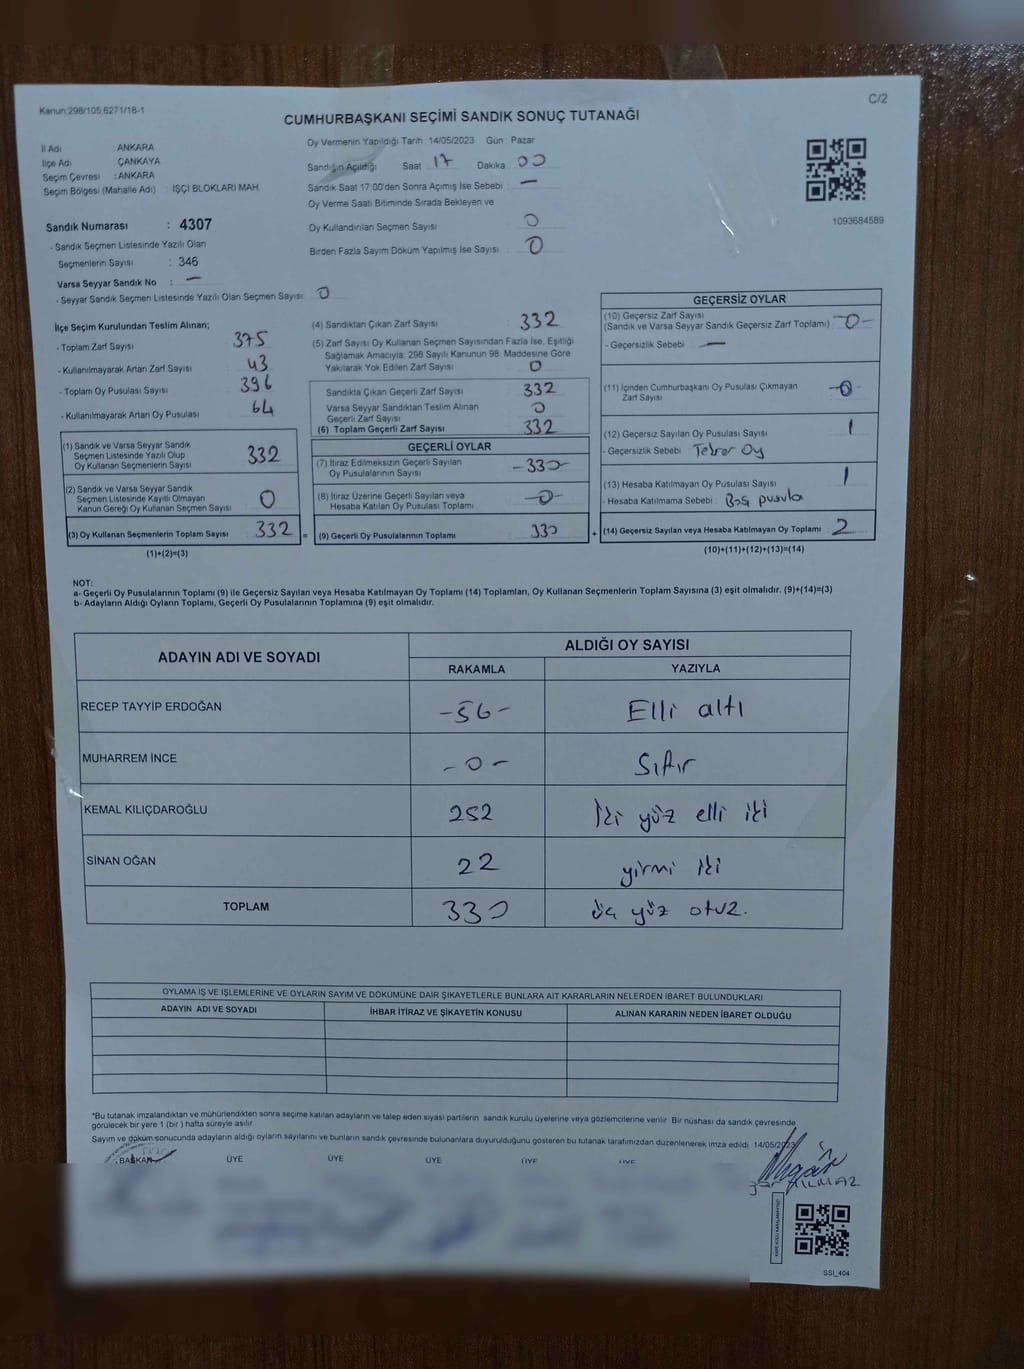 Kanun:298/105;6271/18-1
C/2
CUMHURBAŞKANI SEÇİMİ SANDIK SONUÇ TUTANAĞI
İl Adı : ANKARA
İlçe Adı : ÇANKAYA
Seçim Çevresi : ANKARA
Seçim Bölgesi (Mahalle Adı) : İŞÇİ BLOKLARI MAH.
Sandık Numarası : 4307
- Sandık Seçmen Listesinde Yazılı Olan
Seçmenlerin Sayısı : 346
Varsa Seyyar Sandık No : —
- Seyyar Sandık Seçmen Listesinde Yazılı Olan Seçmen Sayısı: 0
Oy Vermenin Yapıldığı Tarih : 14/05/2023 Gün : Pazar
Sandığın Açıldığı Saat 17 Dakika 00
Sandık Saat 17.00'den Sonra Açımış İse Sebebi : —
Oy Verme Saati Bitiminde Sırada Bekleyen ve
Oy Kullandırılan Seçmen Sayısı 0
Birden Fazla Sayım Döküm Yapılmış İse Sayısı : 0
1093684589
İlçe Seçim Kurulundan Teslim Alınan;
- Toplam Zarf Sayısı 375
- Kullanılmayarak Artan Zarf Sayısı 43
- Toplam Oy Pusulası Sayısı 396
- Kullanılmayarak Artan Oy Pusulası 64
(1) Sandık ve Varsa Seyyar Sandık
Seçmen Listesinde Yazılı Olup
Oy Kullanan Seçmenlerin Sayısı 332
(2) Sandık ve Varsa Seyyar Sandık
Seçmen Listesinde Kayıtlı Olmayan
Kanun Gereği Oy Kullanan Seçmen Sayısı 0
(3) Oy Kullanan Seçmenlerin Toplam Sayısı 332 =
(1)+(2)=(3)
(4) Sandıktan Çıkan Zarf Sayısı 332
(5) Zarf Sayısı Oy Kullanan Seçmen Sayısından Fazla İse, Eşitliği
Sağlamak Amacıyla; 298 Sayılı Kanunun 98. Maddesine Göre
Yakılarak Yok Edilen Zarf Sayısı 0
Sandıkta Çıkan Geçerli Zarf Sayısı 332
Varsa Seyyar Sandıktan Teslim Alınan
Geçerli Zarf Sayısı 0
(6) Toplam Geçerli Zarf Sayısı 332
GEÇERLİ OYLAR
(7) İtiraz Edilmeksizin Geçerli Sayılan
Oy Pusulalarının Sayısı -330-
(8) İtiraz Üzerine Geçerli Sayılan veya
Hesaba Katılan Oy Pusulası Toplamı -0-
(9) Geçerli Oy Pusulalarının Toplamı 330 +
GEÇERSİZ OYLAR
(10) Geçersiz Zarf Sayısı
(Sandık ve Varsa Seyyar Sandık Geçersiz Zarf Toplamı) -0-
- Geçersizlik Sebebi : —
(11) İçinden Cumhurbaşkanı Oy Pusulası Çıkmayan
Zarf Sayısı -0-
(12) Geçersiz Sayılan Oy Pusulası Sayısı 1
- Geçersizlik Sebebi : Tekrar Oy
(13) Hesaba Katılmayan Oy Pusulası Sayısı 1
- Hesaba Katılmama Sebebi : Boş pusula
(14) Geçersiz Sayılan veya Hesaba Katılmayan Oy Toplamı 2
(10)+(11)+(12)+(13)=(14)
NOT:
a- Geçerli Oy Pusulalarının Toplamı (9) ile Geçersiz Sayılan veya Hesaba Katılmayan Oy Toplamı (14) Toplamları, Oy Kullanan Seçmenlerin Toplam Sayısına (3) eşit olmalıdır. (9)+(14)=(3)
b- Adayların Aldığı Oyların Toplamı, Geçerli Oy Pusulalarının Toplamına (9) eşit olmalıdır.
ADAYIN ADI VE SOYADI ALDIĞI OY SAYISI
RAKAMLA YAZIYLA
RECEP TAYYİP ERDOĞAN -56- Elli altı
MUHARREM İNCE -0- Sıfır
KEMAL KILIÇDAROĞLU 252 İki yüz elli iki
SİNAN OĞAN 22 yirmi iki
TOPLAM 330 üç yüz otuz.
OYLAMA İŞ VE İŞLEMLERİNE VE OYLARIN SAYIM VE DÖKÜMÜNE DAİR ŞİKAYETLERLE BUNLARA AİT KARARLARIN NELERDEN İBARET BULUNDUKLARI
ADAYIN ADI VE SOYADI İHBAR İTİRAZ VE ŞİKAYETİN KONUSU ALINAN KARARIN NEDEN İBARET OLDUĞU
*Bu tutanak imzalandıktan ve mühürlendikten sonra seçime katılan adayların ve talep eden siyasi partilerin sandık kurulu üyelerine veya gözlemcilerine verilir. Bir nüshası da sandık çevresinde
görülecek bir yere 1 (bir ) hafta süreyle asılır.
Sayım ve döküm sonucunda adayların aldığı oyların sayılarını ve bunların sandık çevresinde bulunanlara duyurulduğunu gösteren bu tutanak tarafımızdan düzenlenerek imza edildi. 14/05/2023
BAŞKAN ÜYE ÜYE ÜYE ÜYE ÜYE
YILMAZ
SSİ_404